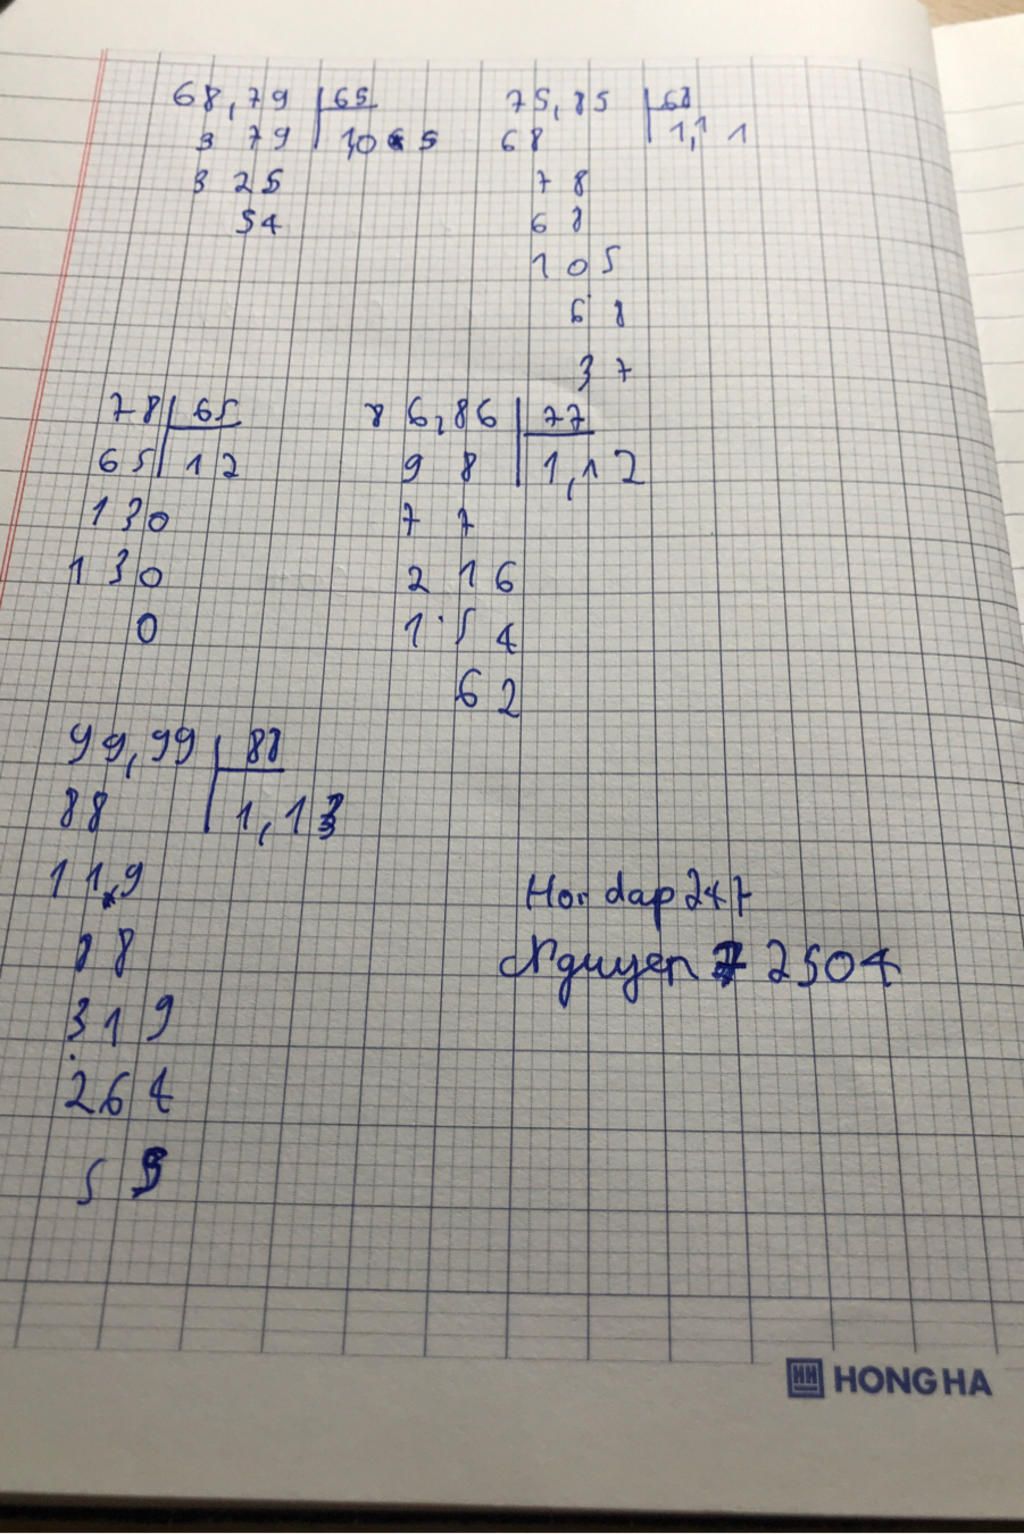 68,79 65
3 79 1,05
3 25
54
75,85 68
68 1,11
7 8
6 8
1 0 5
6 8
3 7
78 65
65 12
130
130
0
86,86 77
9 8 1,12
7 7
2 1 6
1 5 4
6 2
99,99 88
88 1,13
11,9
8 8
3 1 9
2 6 4
5 5
Hoi dap 247
Nguyen 7 2504
HONG HA